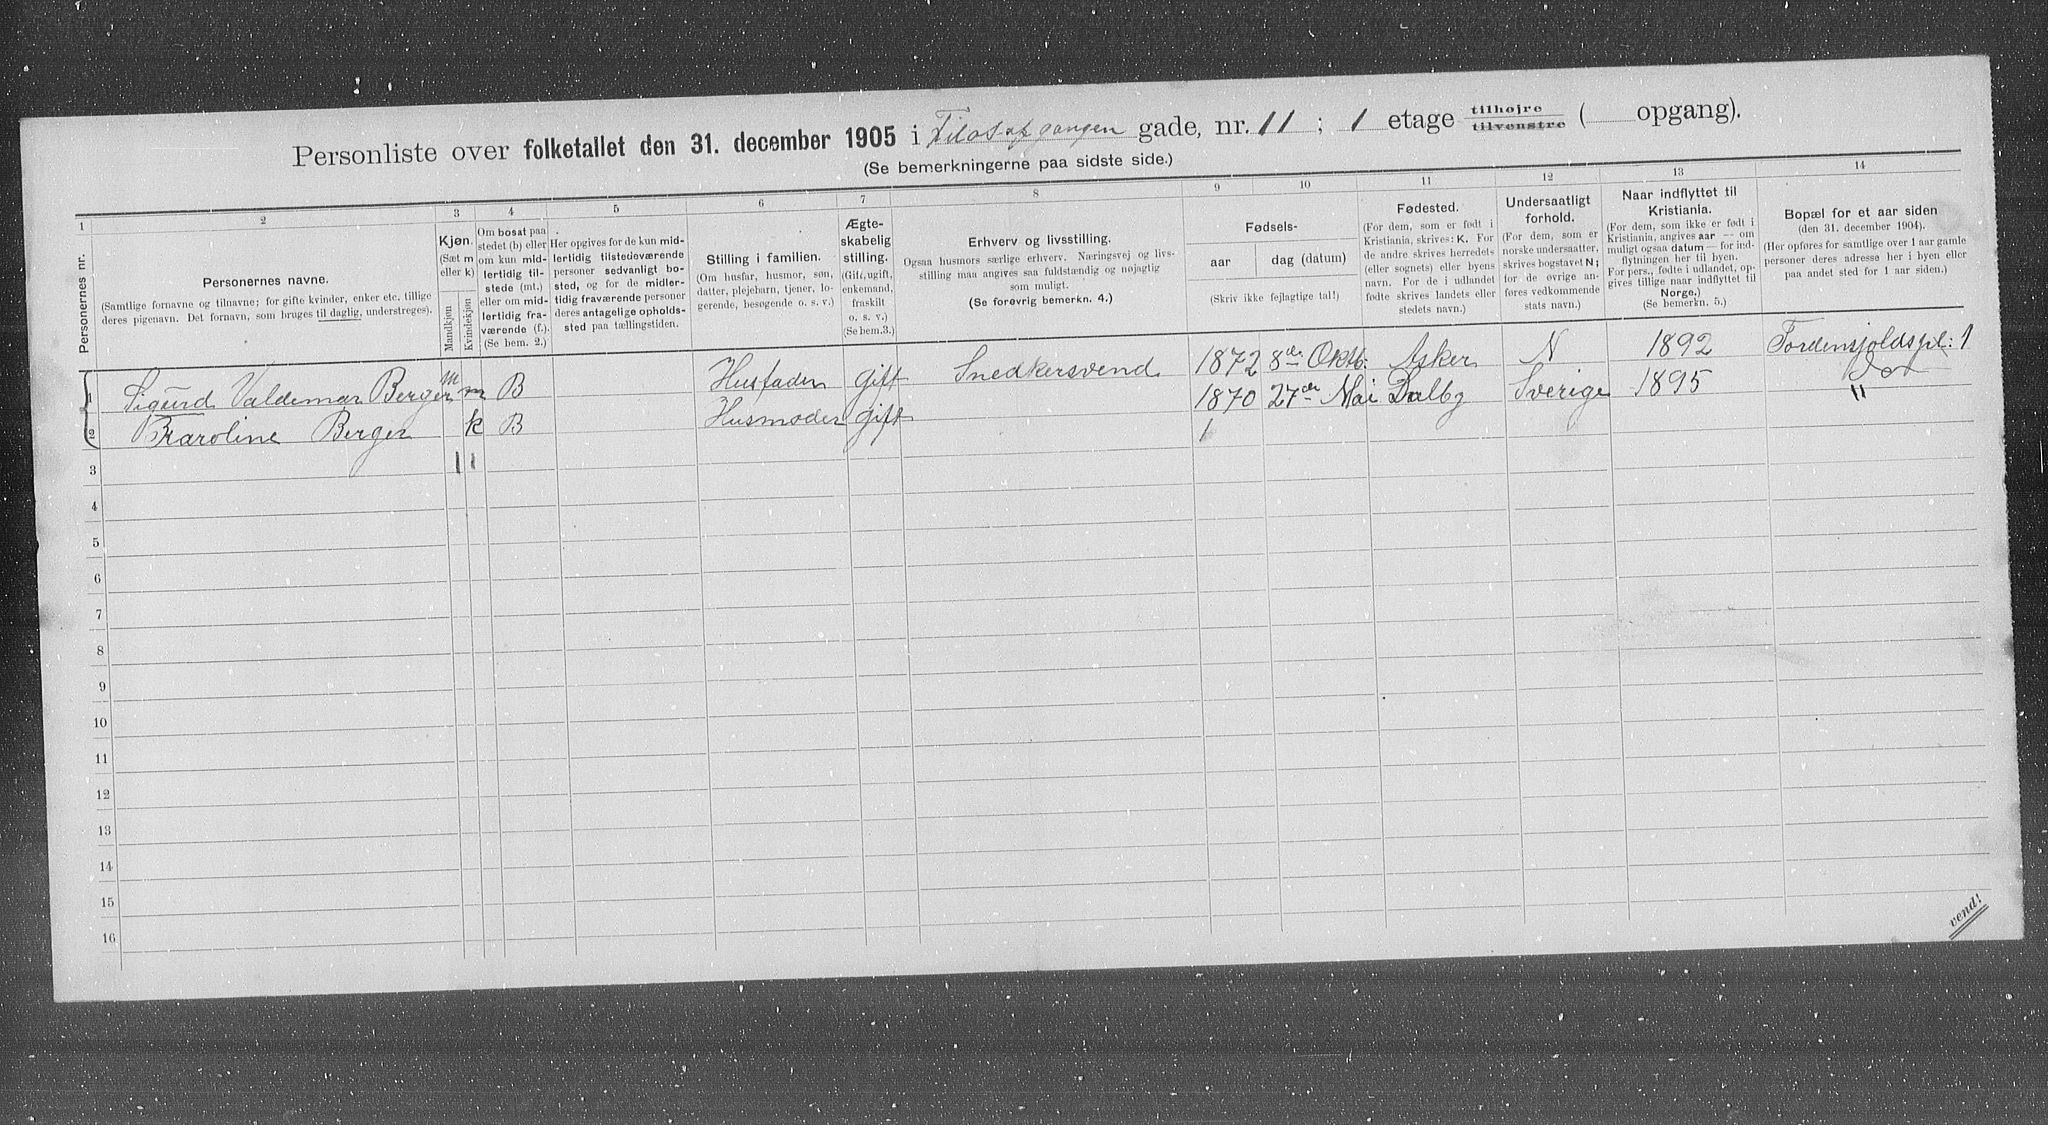 Personliste over folketallet den 31. december 1905 i Filosofgangen gade, nr. 11 ; 1 etage tilhøjre tilvenstre ( opgang).
(Se bemerkningerne paa sidste side.)
1 2 3 4 5 6 7 8 9 10 11 12 13 14
Personernes nr.
Personernes navne.
(Samtlige fornavne og tilnavne; for gifte kvinder, enker etc. tillige
deres pigenavn. Det fornavn, som bruges til daglig, understreges).
Kjøn.
(Sæt m
eller k)
Mandkjøn
Kvindekjøn
Om bosat paa
stedet (b) eller
om kun mid-
lertidig til-
stede (mt.)
eller om mid-
lertidig fra-
værende (f.).
(Se bem. 2.)
Her opgives for de kun mid-
lertidig tilstedeværende
personer sedvanligt bo-
sted, og for de midler-
tidig fraværende personer
deres antagelige opholds-
sted paa tællingstiden.
Stilling i familien.
(Om husfar, husmor, søn,
datter, plejebarn, tjener, lo-
gerende, besøgende o. s. v.)
Ægte-
skabelig
stilling.
(Gift, ugift,
enkemand,
fraskilt
o. s. v.)
(Se bem.3.)
Erhverv og livsstilling.
Ogsaa husmors særlige erhverv. Næringsvej og livs-
stilling maa angives saa fuldstændig og nøjagtig
som muligt.
(Se forøvrig bemerkn. 4.)
Fødsels-
aar
dag (datum)
(Skriv ikke fejlagtige tal!)
Fødested.
(For dem, som er født i
Kristiania, skrives: K. For
de andre skrives herredets
(eller sognets) eller byens
navn. For de i udlandet
fødte skrives landets eller
stedets navn.)
Undersaatligt
forhold.
(For dem, som er
norske undersaatter,
skrives bogstavet N;
for de øvrige an-
føres vedkommende
stats navn.)
Naar indflyttet til
Kristiania.
(For dem, som ikke er født i
Kristiania, angives aar — om
muligt ogsaa datum — for ind-
flytningen her til byen.
For pers., fødte i udlandet, op-
gives tillige naar indflyttet til
Norge.)
(Se bemerkn. 5.)
Bopæl for et aar siden
(den 31. december 1904).
(Her opføres for samtlige over 1 aar gamle
personer deres adresse her i byen eller
paa andet sted for 1 aar siden.)
1 Sigurd Valdemar Berger m m B Husfader gift Snedkersvend 1872 8de Oktb: Asker N 1892 Tordensjoldspl: 1
2 Karoline Berger k B Husmoder gift 1870 27de Mai Dalby Sverige 1895 Do "
3 1 1 1
4
5
6
7
8
9
10
11
12
13
14
15
16
vend!